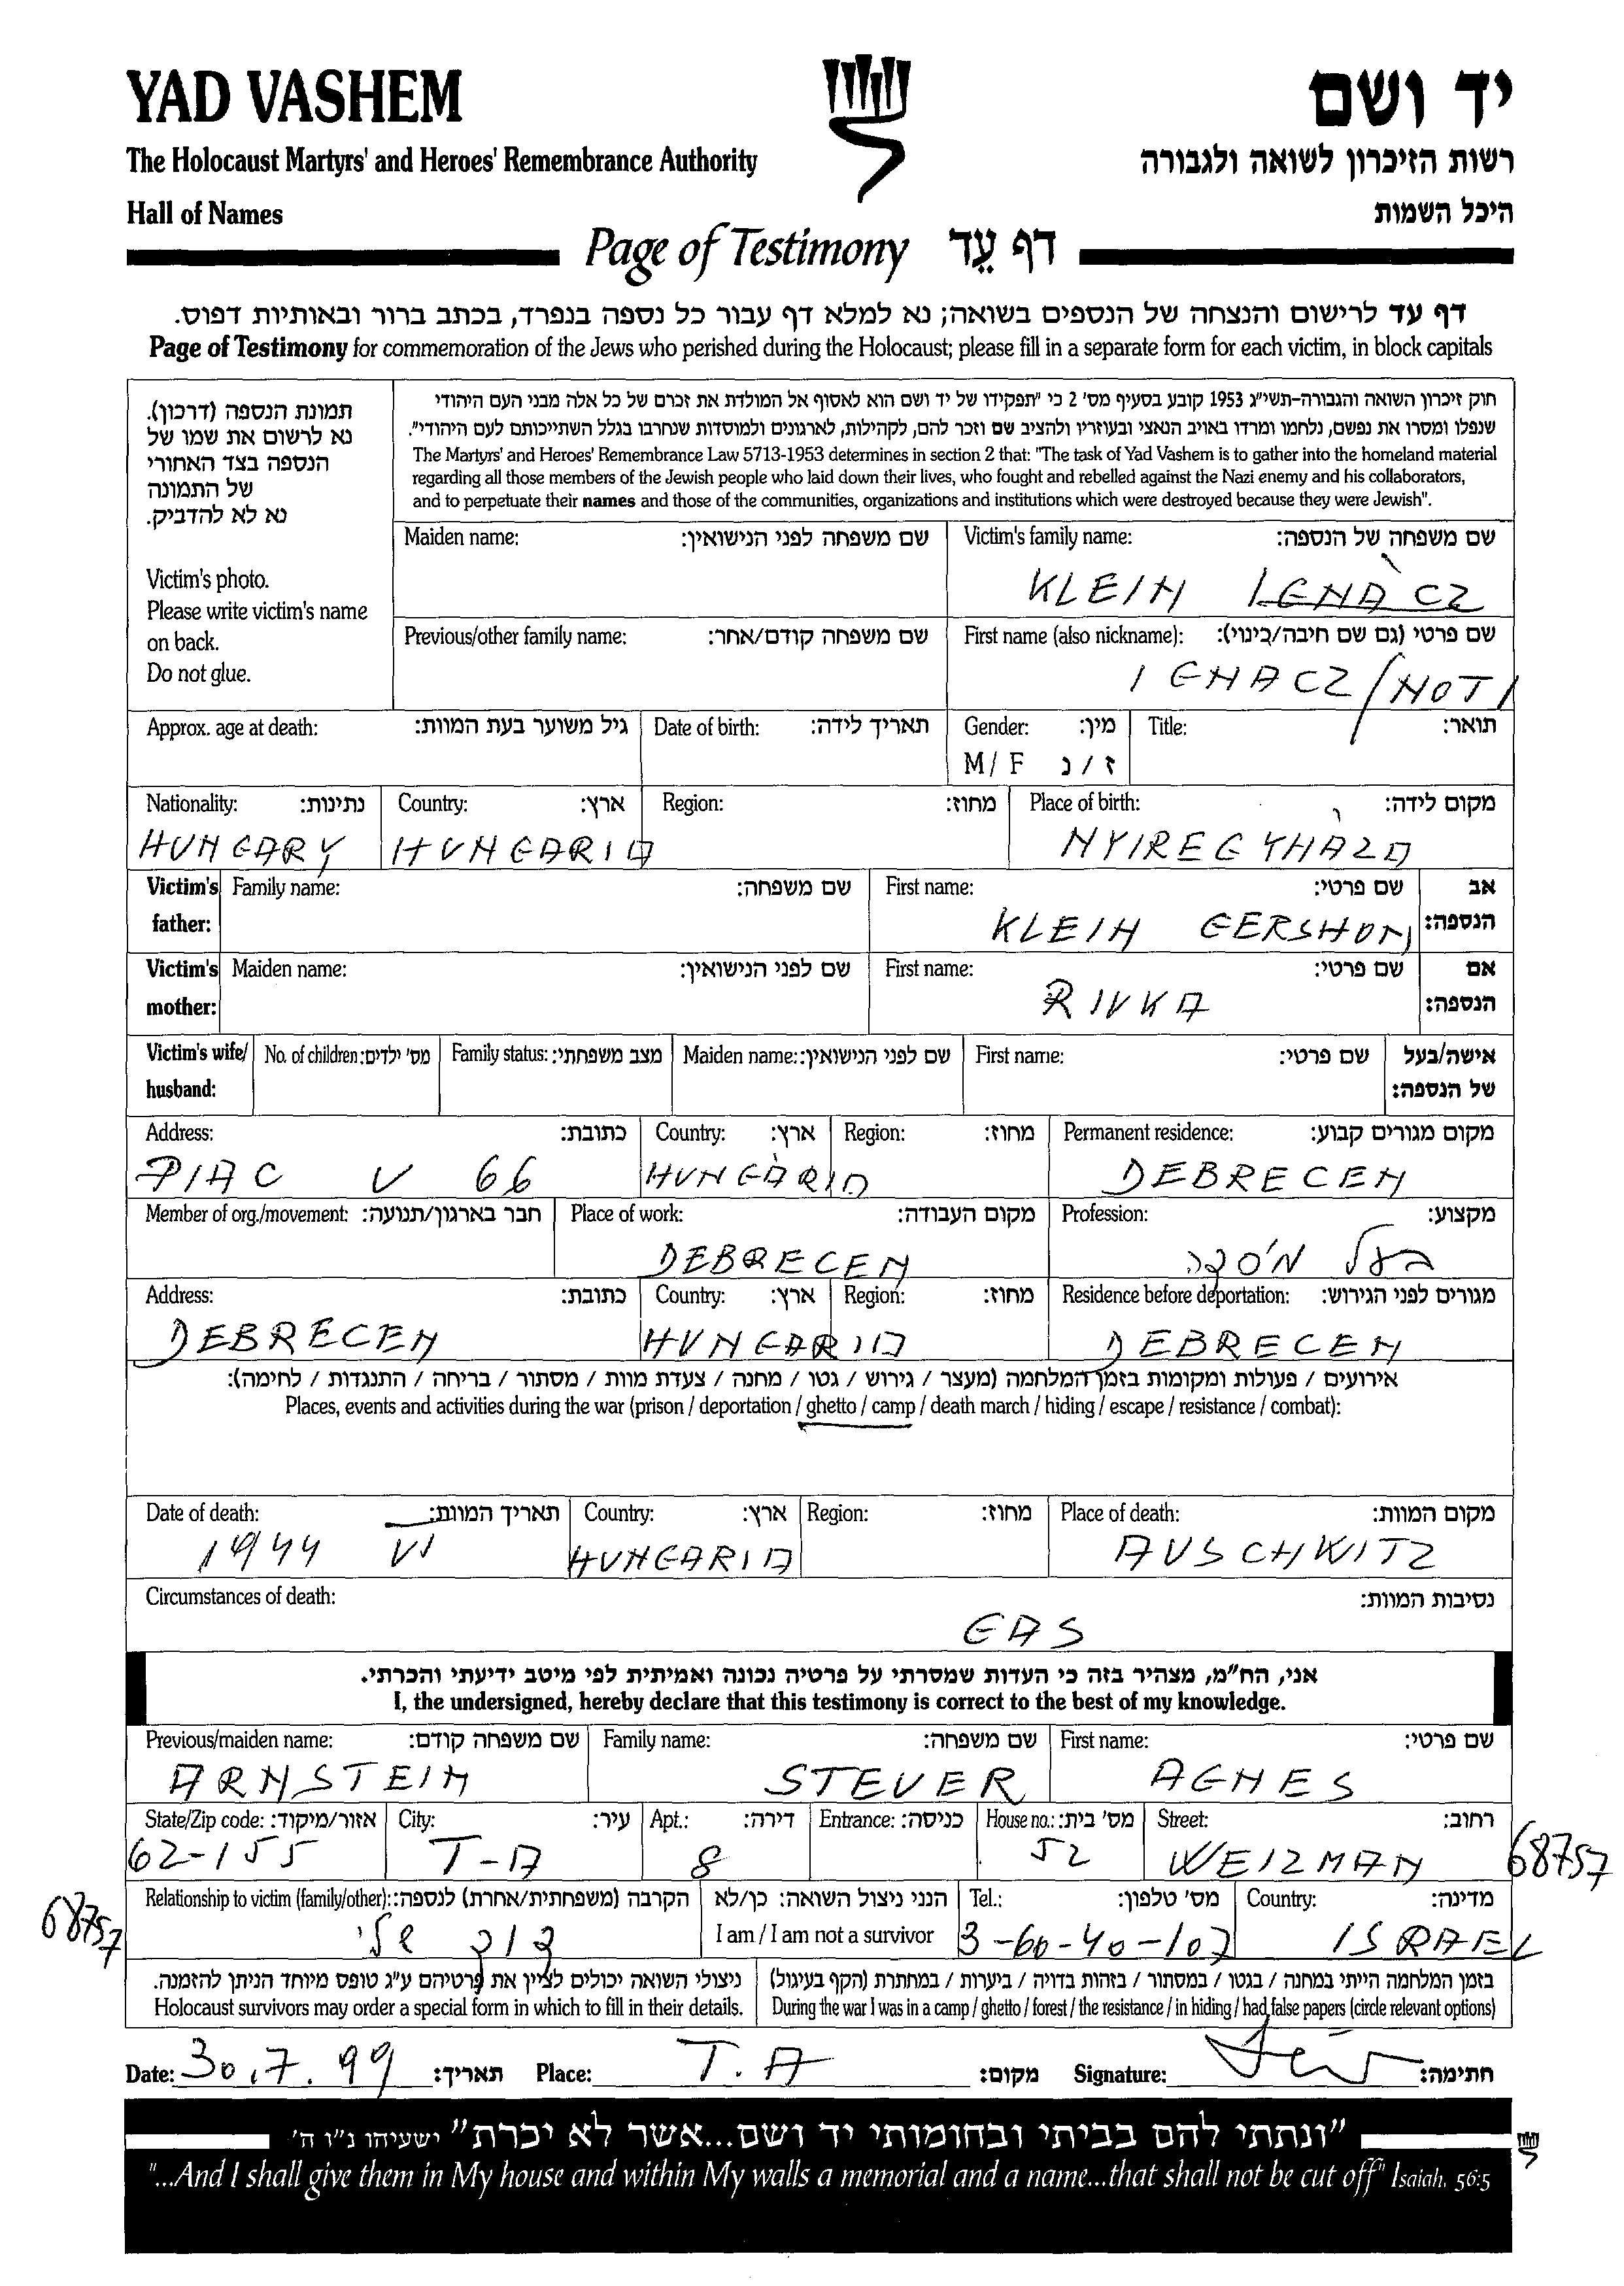 YAD VASHEM
יד ושם
The Holocaust Martyrs' and Heroes' Remembrance Authority
רשות הזיכרון לשואה ולגבורה
Hall of Names
היכל השמות
Page of Testimony דף עֵד
דף עד לרישום והנצחה של הנספים בשואה; נא למלא דף עבור כל נספה בנפרד, בכתב ברור ובאותיות דפוס.
Page of Testimony for commemoration of the Jews who perished during the Holocaust; please fill in a separate form for each victim, in block capitals
תמונת הנספה (דרכון).
נא לרשום את שמו של
הנספה בצד האחורי
של התמונה
נא לא להדביק.
Victim's photo.
Please write victim's name
on back.
Do not glue.
חוק זיכרון השואה והגבורה-תשי"ג 1953 קובע בסעיף מס' 2 כי "תפקידו של יד ושם הוא לאסוף אל המולדת את זכרם של כל אלה מבני העם היהודי
שנפלו ומסרו את נפשם, נלחמו ומרדו באויב הנאצי ובעוזריו ולהציב שם וזכר להם, לקהילות, לארגונים ולמוסדות שנחרבו בגלל השתייכותם לעם היהודי".
The Martyrs' and Heroes' Remembrance Law 5713-1953 determines in section 2 that: "The task of Yad Vashem is to gather into the homeland material
regarding all those members of the Jewish people who laid down their lives, who fought and rebelled against the Nazi enemy and his collaborators,
and to perpetuate their names and those of the communities, organizations and institutions which were destroyed because they were Jewish".
Maiden name: שם משפחה לפני הנישואין: Victim's family name: שם משפחה של הנספה:
KLEIN IGNÁCZ
Previous/other family name: שם משפחה קודם/אחר: First name (also nickname): שם פרטי (גם שם חיבה/כינוי):
IGNACZ/NOTI
Approx. age at death: גיל משוער בעת המוות: Date of birth: תאריך לידה: Gender: מין: Title: תואר:
M/ F ז / נ
Nationality: נתינות: Country: ארץ: Region: מחוז: Place of birth: מקום לידה:
HUNGARY HUNGARIA NYIREGYHÁZA
Victim's Family name: שם משפחה: First name: שם פרטי: אב
father: KLEIN GERSHON הנספה:
Victim's Maiden name: שם לפני הנישואין: First name: שם פרטי: אם
mother: RIVKA הנספה:
Victim's wife/ No. of children: מס' ילדים: Family status: מצב משפחתי: Maiden name: שם לפני הנישואין: First name: שם פרטי: אישה/בעל
husband: של הנספה:
Address: כתובת: Country: ארץ: Region: מחוז: Permanent residence: מקום מגורים קבוע:
PIAC U 66 HUNGARIA DEBRECEN
Member of org./movement: חבר בארגון/תנועה: Place of work: מקום העבודה: Profession: מקצוע:
DEBRECEN בעל מסבה
Address: כתובת: Country: ארץ: Region: מחוז: Residence before deportation: מגורים לפני הגירוש:
DEBRECEN HUNGARIA DEBRECEN
אירועים / פעולות ומקומות בזמן המלחמה (מעצר / גירוש / גטו / מחנה / צעדת מוות / מסתור / בריחה / התנגדות / לחימה):
Places, events and activities during the war (prison / deportation / ghetto / camp / death march / hiding / escape / resistance / combat):
Date of death: תאריך המוות: Country: ארץ: Region: מחוז: Place of death: מקום המוות:
1944 VI HUNGARIA AUSCHWITZ
Circumstances of death: נסיבות המוות:
GAS
אני, הח"מ, מצהיר בזה כי העדות שמסרתי על פרטיה נכונה ואמיתית לפי מיטב ידיעתי והכרתי.
I, the undersigned, hereby declare that this testimony is correct to the best of my knowledge.
Previous/maiden name: שם משפחה קודם: Family name: שם משפחה: First name: שם פרטי:
ARNSTEIN STEUER AGNES
State/Zip code: אזור/מיקוד: City: עיר: Apt.: דירה: Entrance: כניסה: House no.: מס' בית: Street: רחוב:
62-155 T-A 8 52 WEIZMAN 68757
Relationship to victim (family/other): הקרבה (משפחתית/אחרת) לנספה: הנני ניצול השואה: כן/לא Tel.: מס' טלפון: Country: מדינה:
68757 דוד שלי I am / I am not a survivor 3-60-40-107 ISRAEL
ניצולי השואה יכולים לציין את פרטיהם ע"ג טופס מיוחד הניתן להזמנה. בזמן המלחמה הייתי במחנה / בגטו / במסתור / בזהות בדויה / ביערות / במחתרת (הקף בעיגול)
Holocaust survivors may order a special form in which to fill in their details. During the war I was in a camp / ghetto / forest / the resistance / in hiding / had false papers (circle relevant options)
Date: 30.7.99 תאריך: Place: T.A מקום: Signature: חתימה:
"ונתתי להם בביתי ובחומותי יד ושם...אשר לא יכרת" ישעיהו נ"ו ה'
"...And I shall give them in My house and within My walls a memorial and a name...that shall not be cut off" Isaiah, 56:5